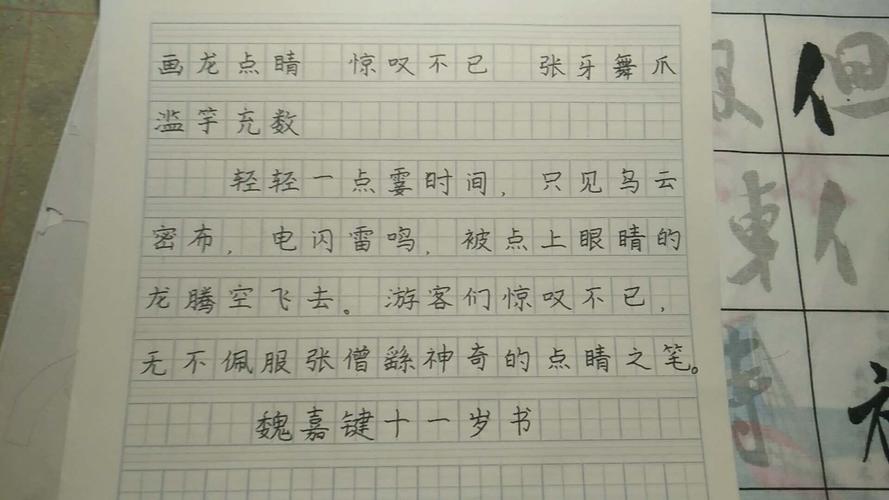 画龙点睛 惊叹不已 张牙舞爪
滥竽充数
轻轻一点霎时间，只见乌云
密布，电闪雷鸣，被点上眼睛的
龙腾空飞去。游客们惊叹不已，
无不佩服张僧繇神奇的点睛之笔。
魏嘉键十一岁书
但